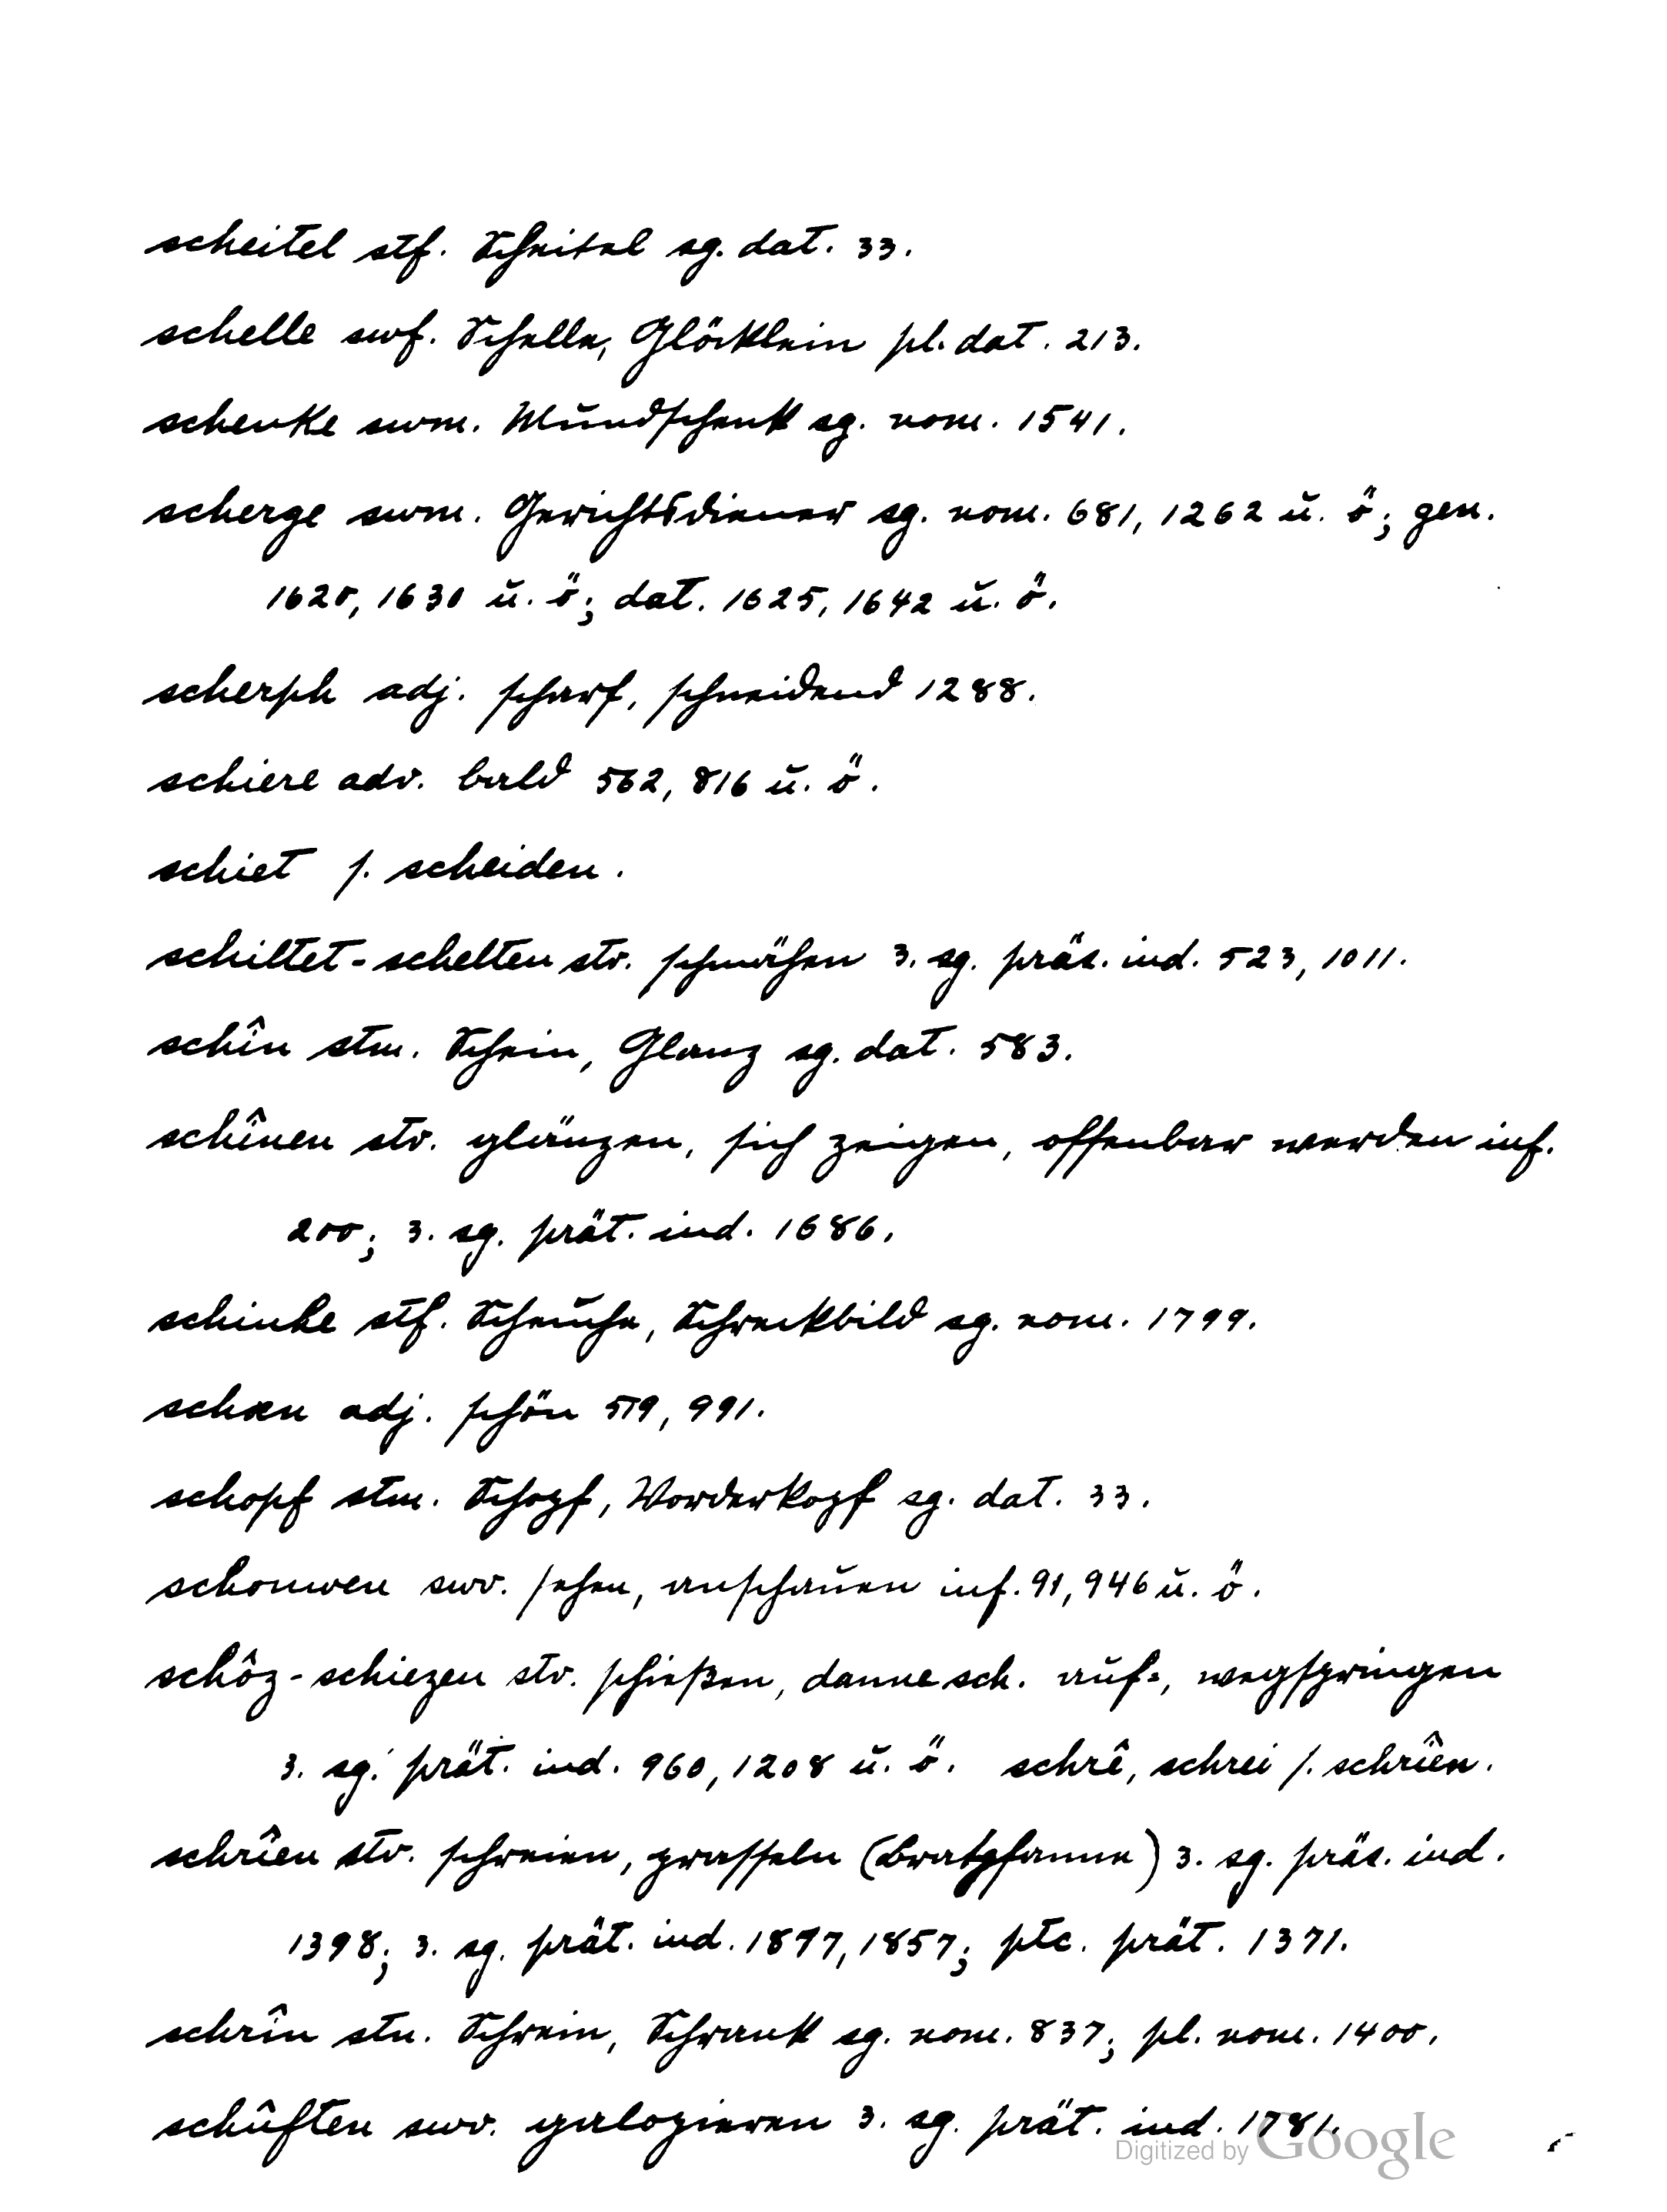 scheitel stf. Scheitel sg. dat. 33.
schelle swf. Schelle, Glöcklein pl. dat. 213.
schenke swm. Mundschenk sg. nom. 1541.
scherge swm. Gerichtsdiener sg. nom. 681, 1262 u. ö.; gen.
1620, 1630 u. ö.; dat. 1625, 1642 u. ö.
scherph adj. scharf, schneidend 1288.
schiere adv. bald 562, 816 u. ö.
schiet s. scheiden.
schiltet - schelten stv. schmähen 3. sg. präs. ind. 523, 1011.
schîn stm. Schein, Glanz sg. dat. 583.
schînen stv. glänzen, sich zeigen, offenbar werden inf.
200; 3. sg. prät. ind. 1686.
schiuhe stf. Scheuche, Schreckbild sg. nom. 1799.
schœn adj. schön 519, 991.
schopf stm. Schopf, Vorderkopf sg. dat. 33.
schouwen swv. sehen, anschauen inf. 91, 946 u. ö.
schôz - schiezen stv. schießen, danne sch. auf-, wegspringen
3. sg. prät. ind. 960, 1208 u. ö. schrê, schrei s. schrîen.
schrîen stv. schreien, prasseln (Bratpfanne) 3. sg. präs. ind.
1398; 3. sg. prät. ind. 1857; ptc. prät. 1371.
schrîn stn. Schrein, Schrank sg. nom. 837; pl. nom. 1400.
schûften swv. galopieren 3. sg. prät. ind. 1781.
Digitized by Google